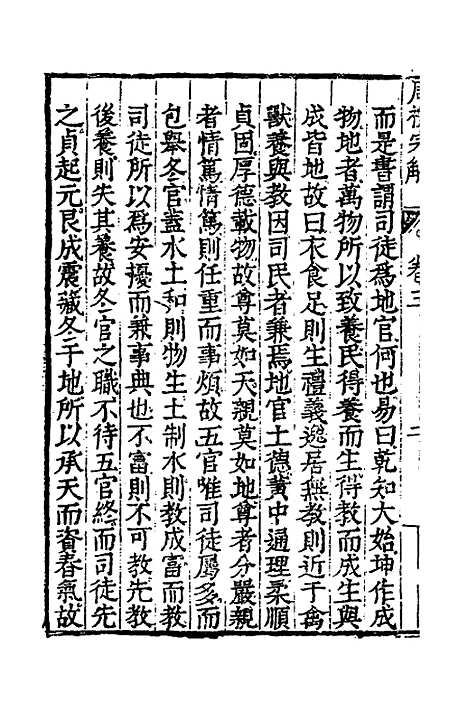 而是書謂司徒爲地官何也易曰乾知大始坤作成
物地者萬物所以致養民得養而生得教而成生與
成皆地故曰衣食足則生禮義逸居無教則近于禽
獸養與教因司民者兼焉地官土德黄中通理柔順
貞固厚德載物故尊莫如天親莫如地尊者分嚴親
者情篤情篤則任重而事煩故五官唯司徒屬多而
包舉冬官蓋水土和則物生土制水則教成富而教
司徒所以爲安擾而兼事典也不富則不可教先教
後養則失其養故冬官之職不待五官終而司徒先
之貞起元艮成震藏冬于地所以承天而資春氣故
卷三